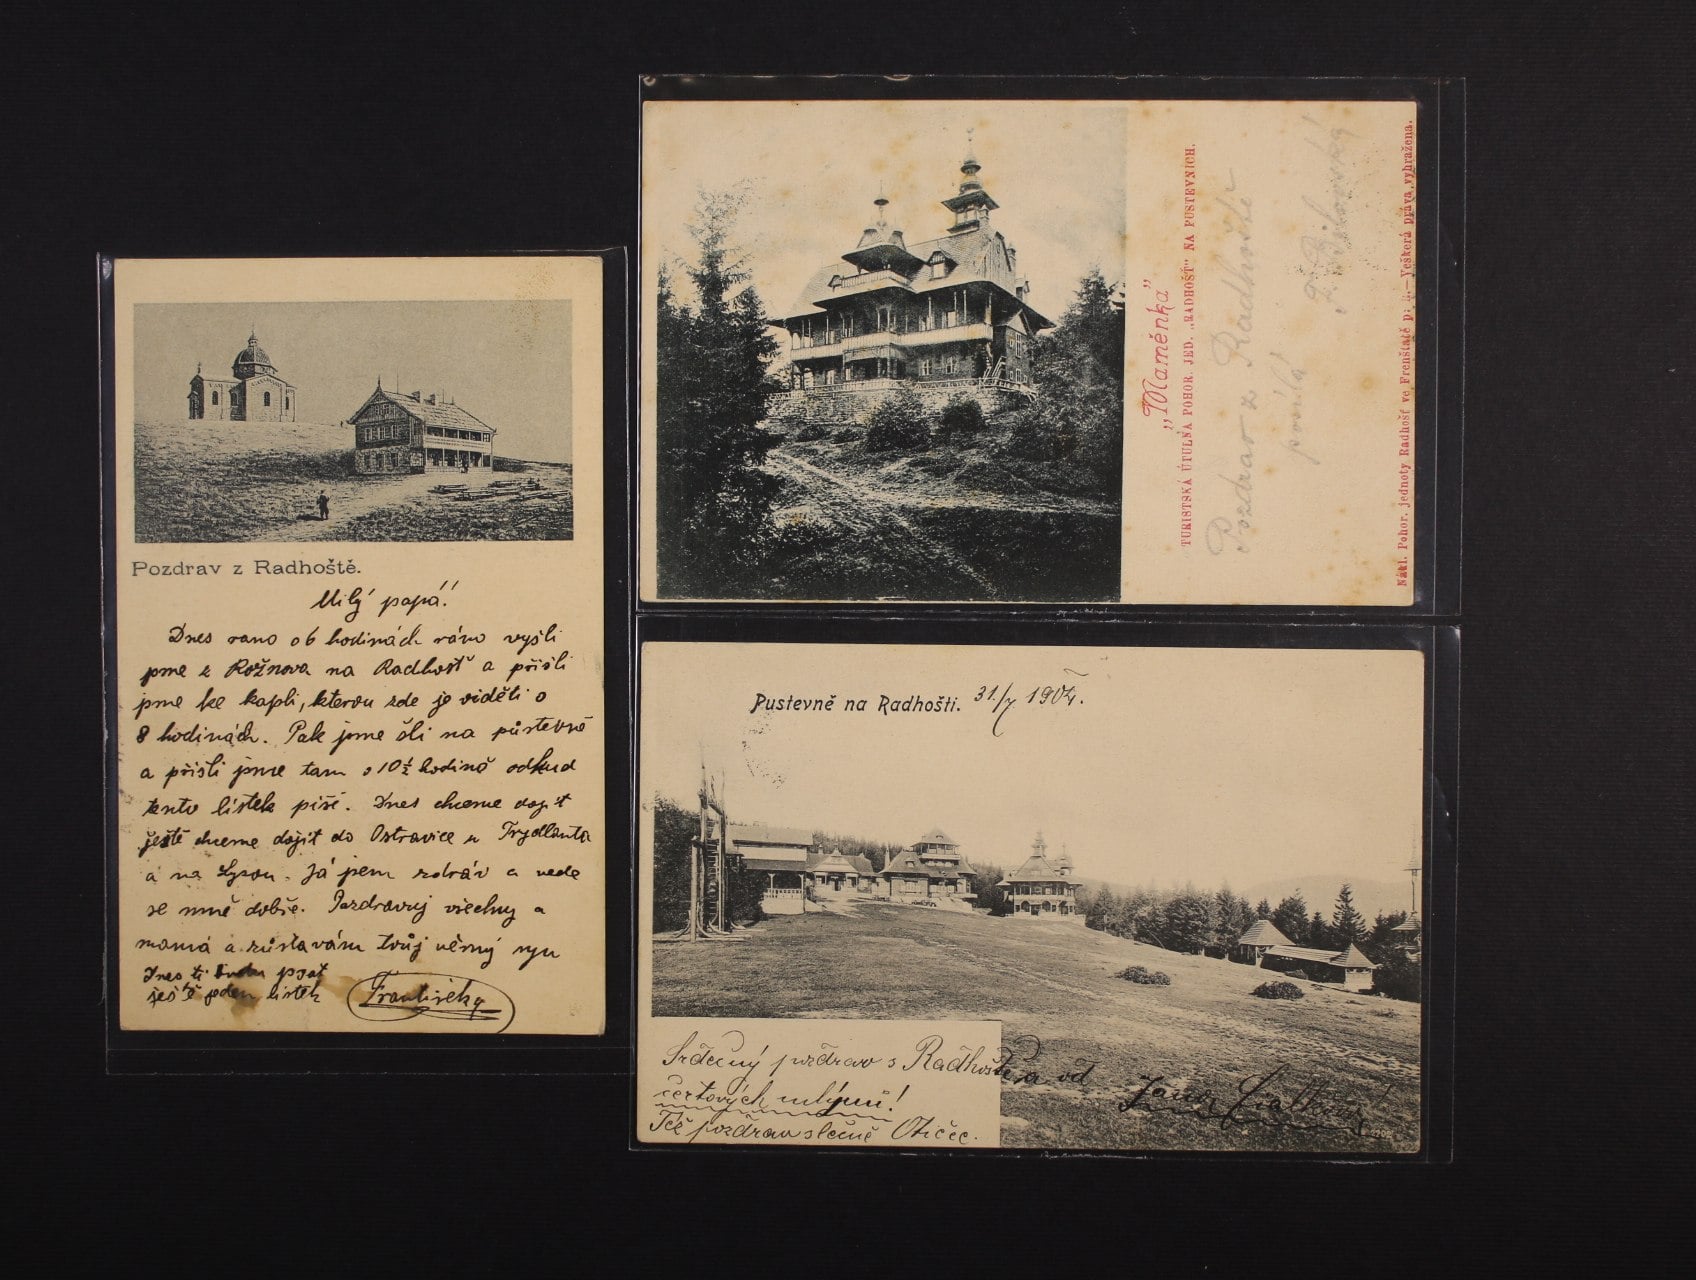 Pozdrav z Radhoště.
Milý papá!
Dnes rano o 6 hodinách ráno vyšli
jsme z Rožnova na Radhošť a přišli
jsme ke kapli, kterou zde je viděti o
8 hodinách. Pak jsme šli na pústevně
a přišli jsme tam o 10 ½ hodině odkud
tento lístek píši. Dnes chceme dojít
ještě chceme dojít do Ostravice u Frydlanta
a na Lysou. Já jsem zdráv a vede
se mně dobře. Pozdravuj všechny a
mamá a zůstavám tvůj věrný syn
Dnes ti budu psat
ještě jeden lístek
„Maměnka"
TURISTSKÁ ÚTULŇA POHOR. JED. „RADHOŠŤ" NA PUSTEVNÍCH.
Pozdrav z Radhoště
posílá
Nákl. Pohor. jednoty Radhošť ve Frenštátě p. R.—Veškerá práva vyhražena.
Pustevně na Radhošti. 31./7 1904.
Srdečný pozdrav s Radhoště a od
čertových mlýnů!
Též pozdrav slečně Otičce.